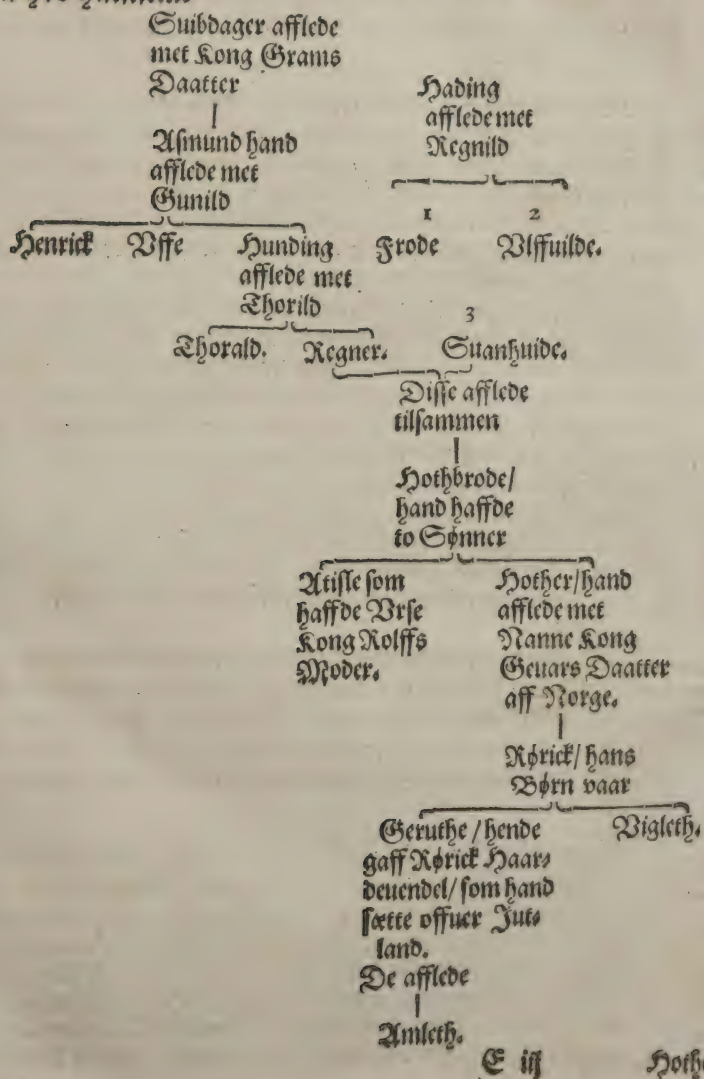 Suibdager afflede
met Kong Grams
Daatter
Hading
afflede met
Regnild
Asmund hand
afflede met
Gunild
1 2
Henrick Vffe Hunding Frode Vlffuilde.
afflede met
Thorild
3
Thorald. Regner. Suanhuide.
Disse afflede
tilsammen
Hothbrode/
hand haffde
to Sønner
Atisle som
haffde Vrse
Kong Rolffs
Moder.
Hother/hand
afflede met
Nanne Kong
Geuars Daatter
aff Norge.
Rørick/ hans
Børn vaar
Geruthe / hende
gaff Rørick Haar⸗
deuendel/ som hand
sætte offuer Jut⸗
land.
De afflede
Vigleth.
Amleth.
E iij Hothe